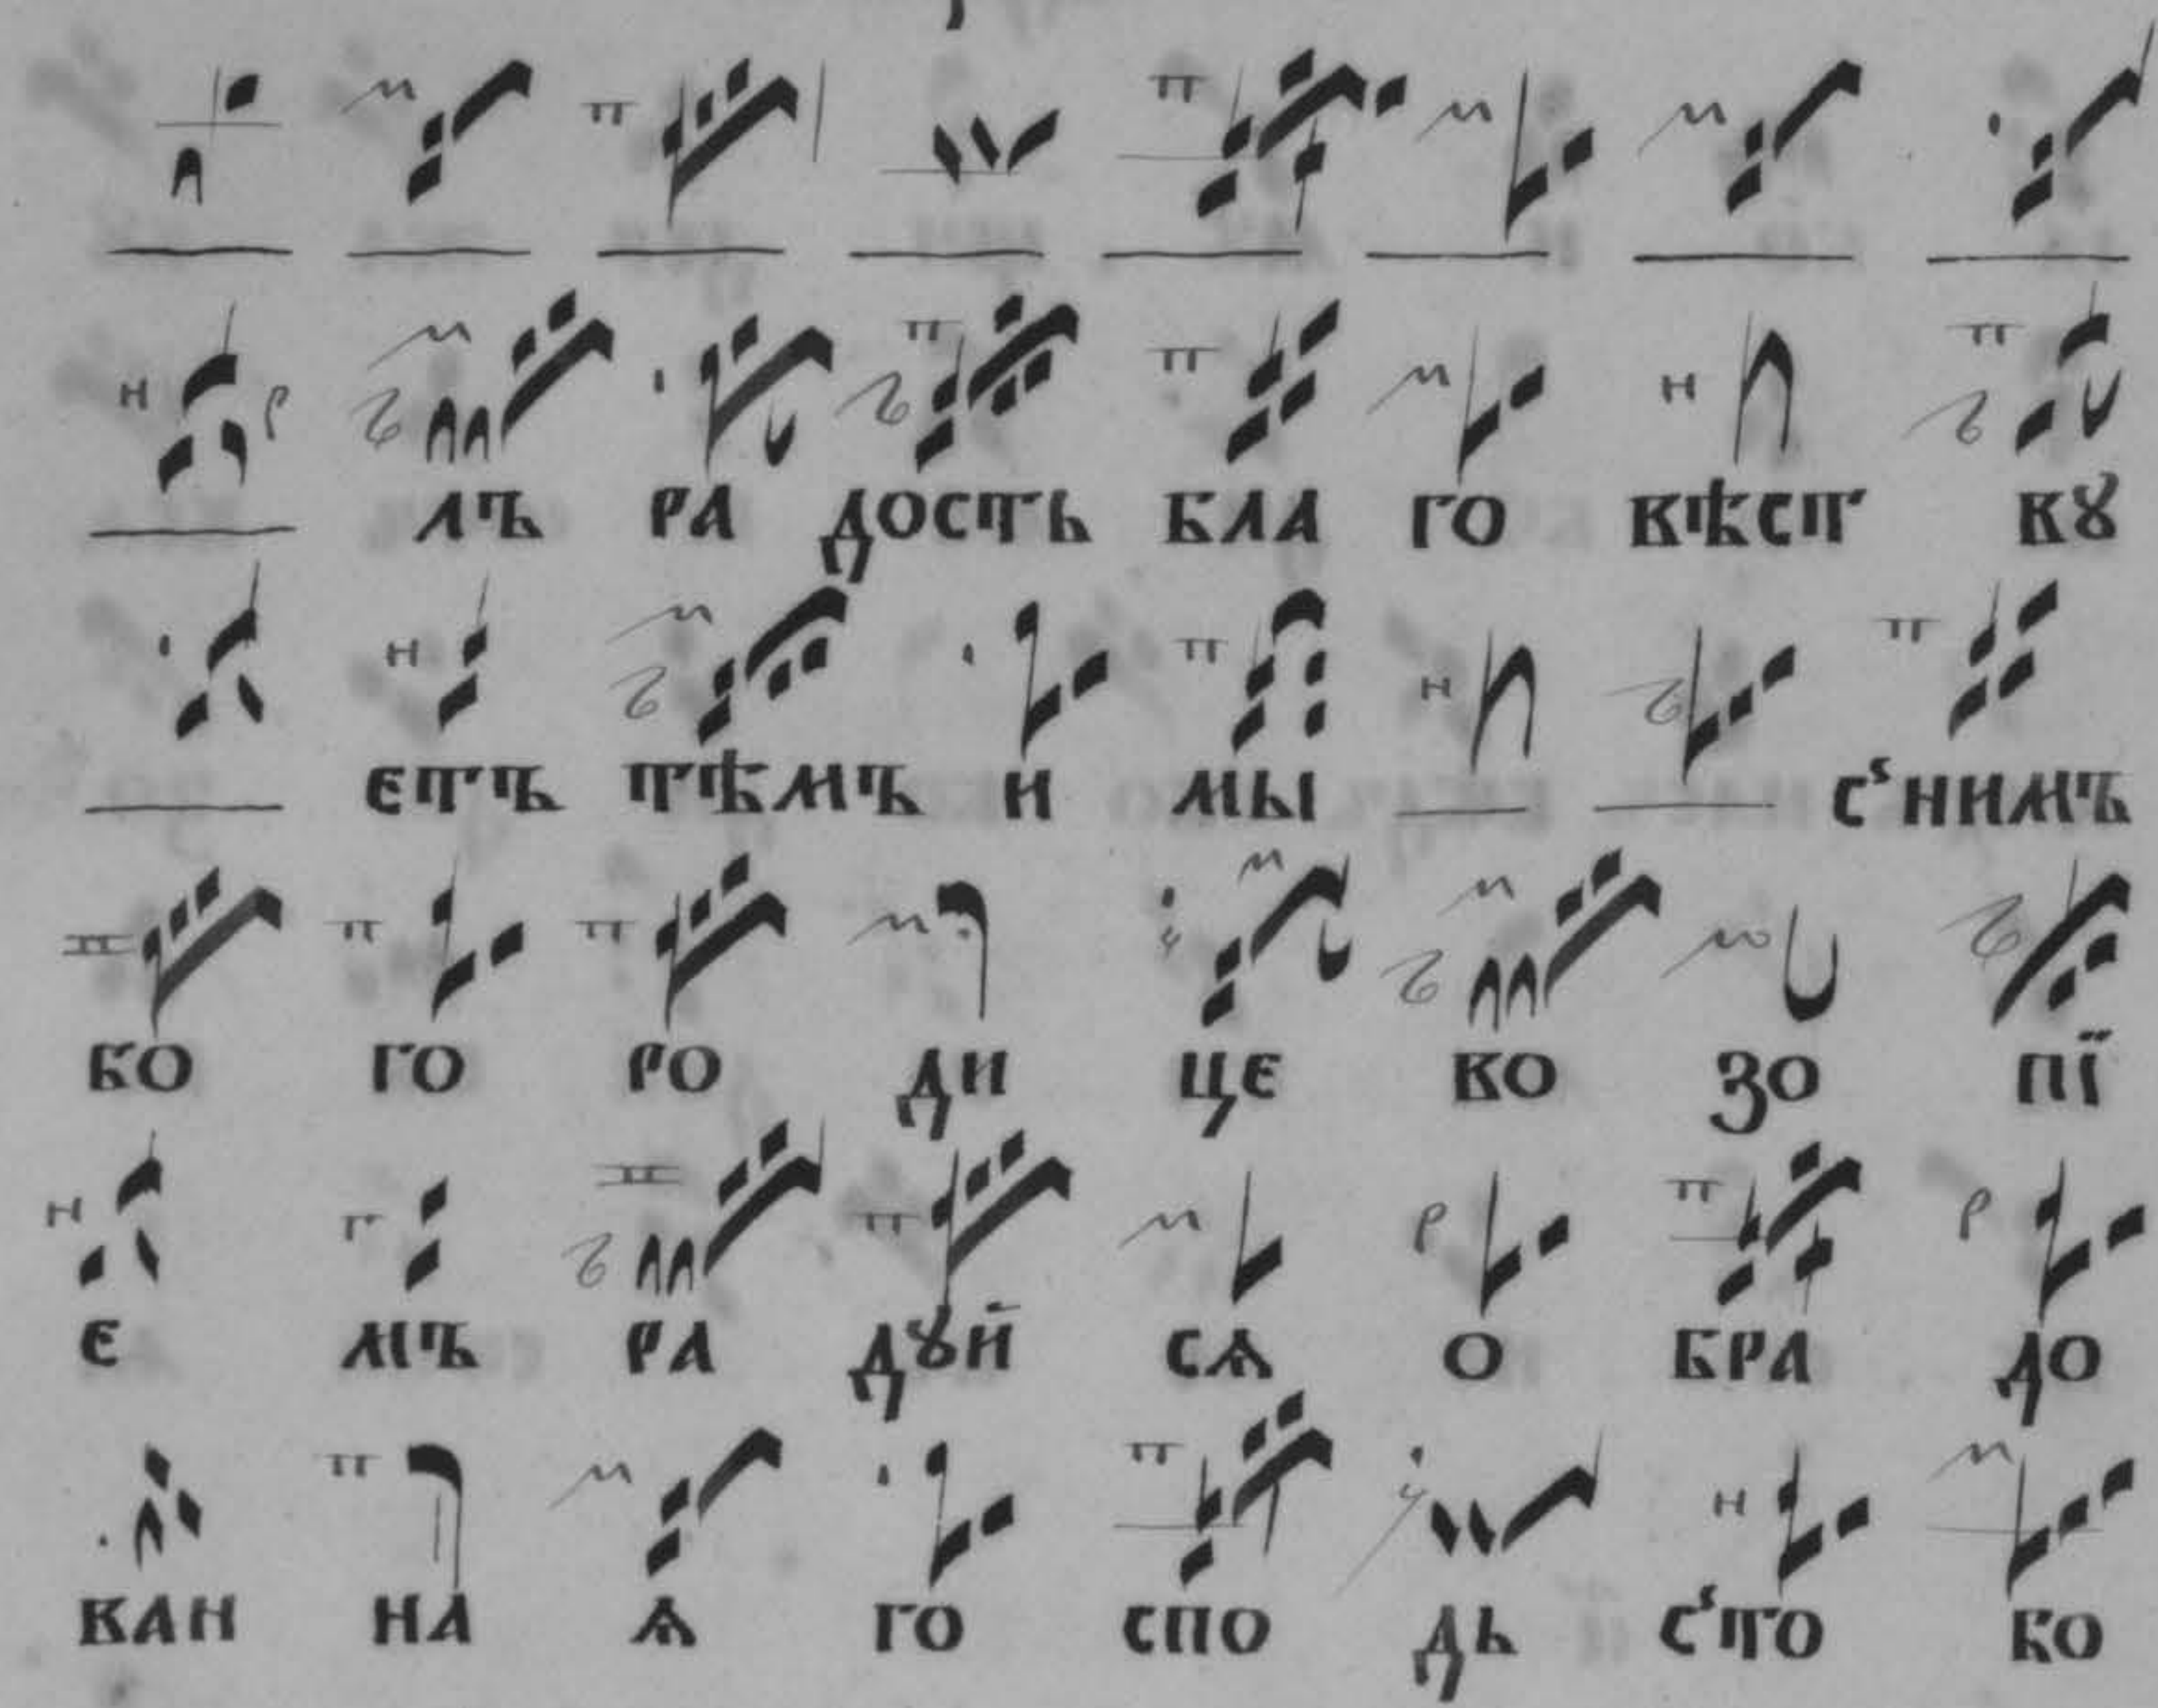 лъ ра дость бла го вѣст ву
етъ тѣмъ и мы с'нимъ
бо го ро ди це во зо пї
е мъ ра дꙋй сѧ о бра до
ван на ѧ го спо дь с'то бо